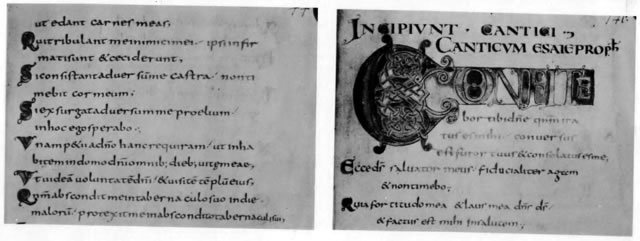 ut edant carnes meas;
Qui tribulant me inimici mei · ipsi infir
mati sunt & ceciderunt;
Si consistant adversū me castra · non ti
mebit cor meum;
Si exsurgat adversum me proelium
in hoc ego sperabo;
Unam petii a dn̄o hanc requiram / ut inha
bitem in domo dn̄i omnib; dieb; vitę meae;
Ut videā voluntatē dn̄i / & visitē tēplū eius;
Qm̄ abscondit me in tabernaculo suo in die
malorū · protexit me in abscondito tabernaculi sui;
INCIPIUNT · CANTICI
CANTICUM ESAIE PROPH
CONFITE
bor tibi dn̄e qm̄ ira
tus es mihi · conversus
est furor tuus & consolatus es me;
Ecce ds̄ salvator meus fiducialiter agam
& non timebo;
Quia fortitudo mea & laus mea dn̄s ds̄
& factus est mihi in salutem;